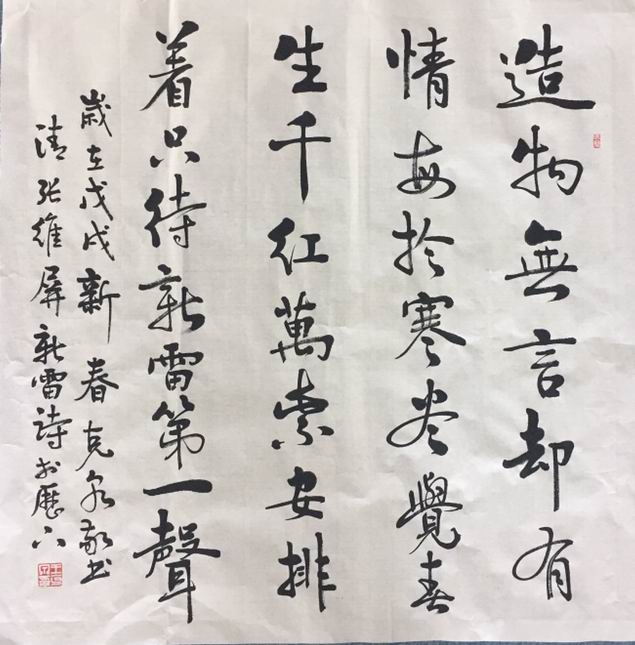 造物無言却有
情每於寒尽覺春
生千红萬紫安排
着只待新雷第一聲
歲在戊戌新春克泉敬书
清张維屏新雷詩於歷下